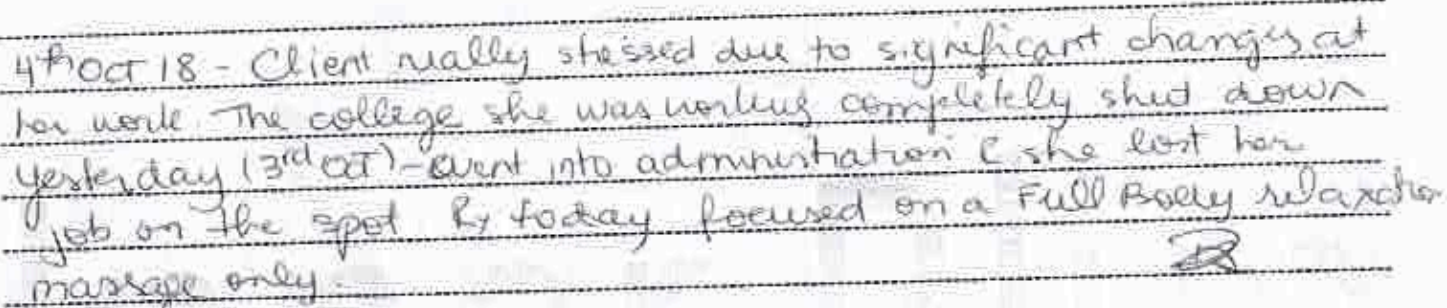 4th Oct 18 - Client really stressed due to significant changes at
her work. The college she was working completely shut down
yesterday (3rd OCT) - went into administration & she lost her
job on the spot. Rx today focused on a Full Body relaxation
massage only.